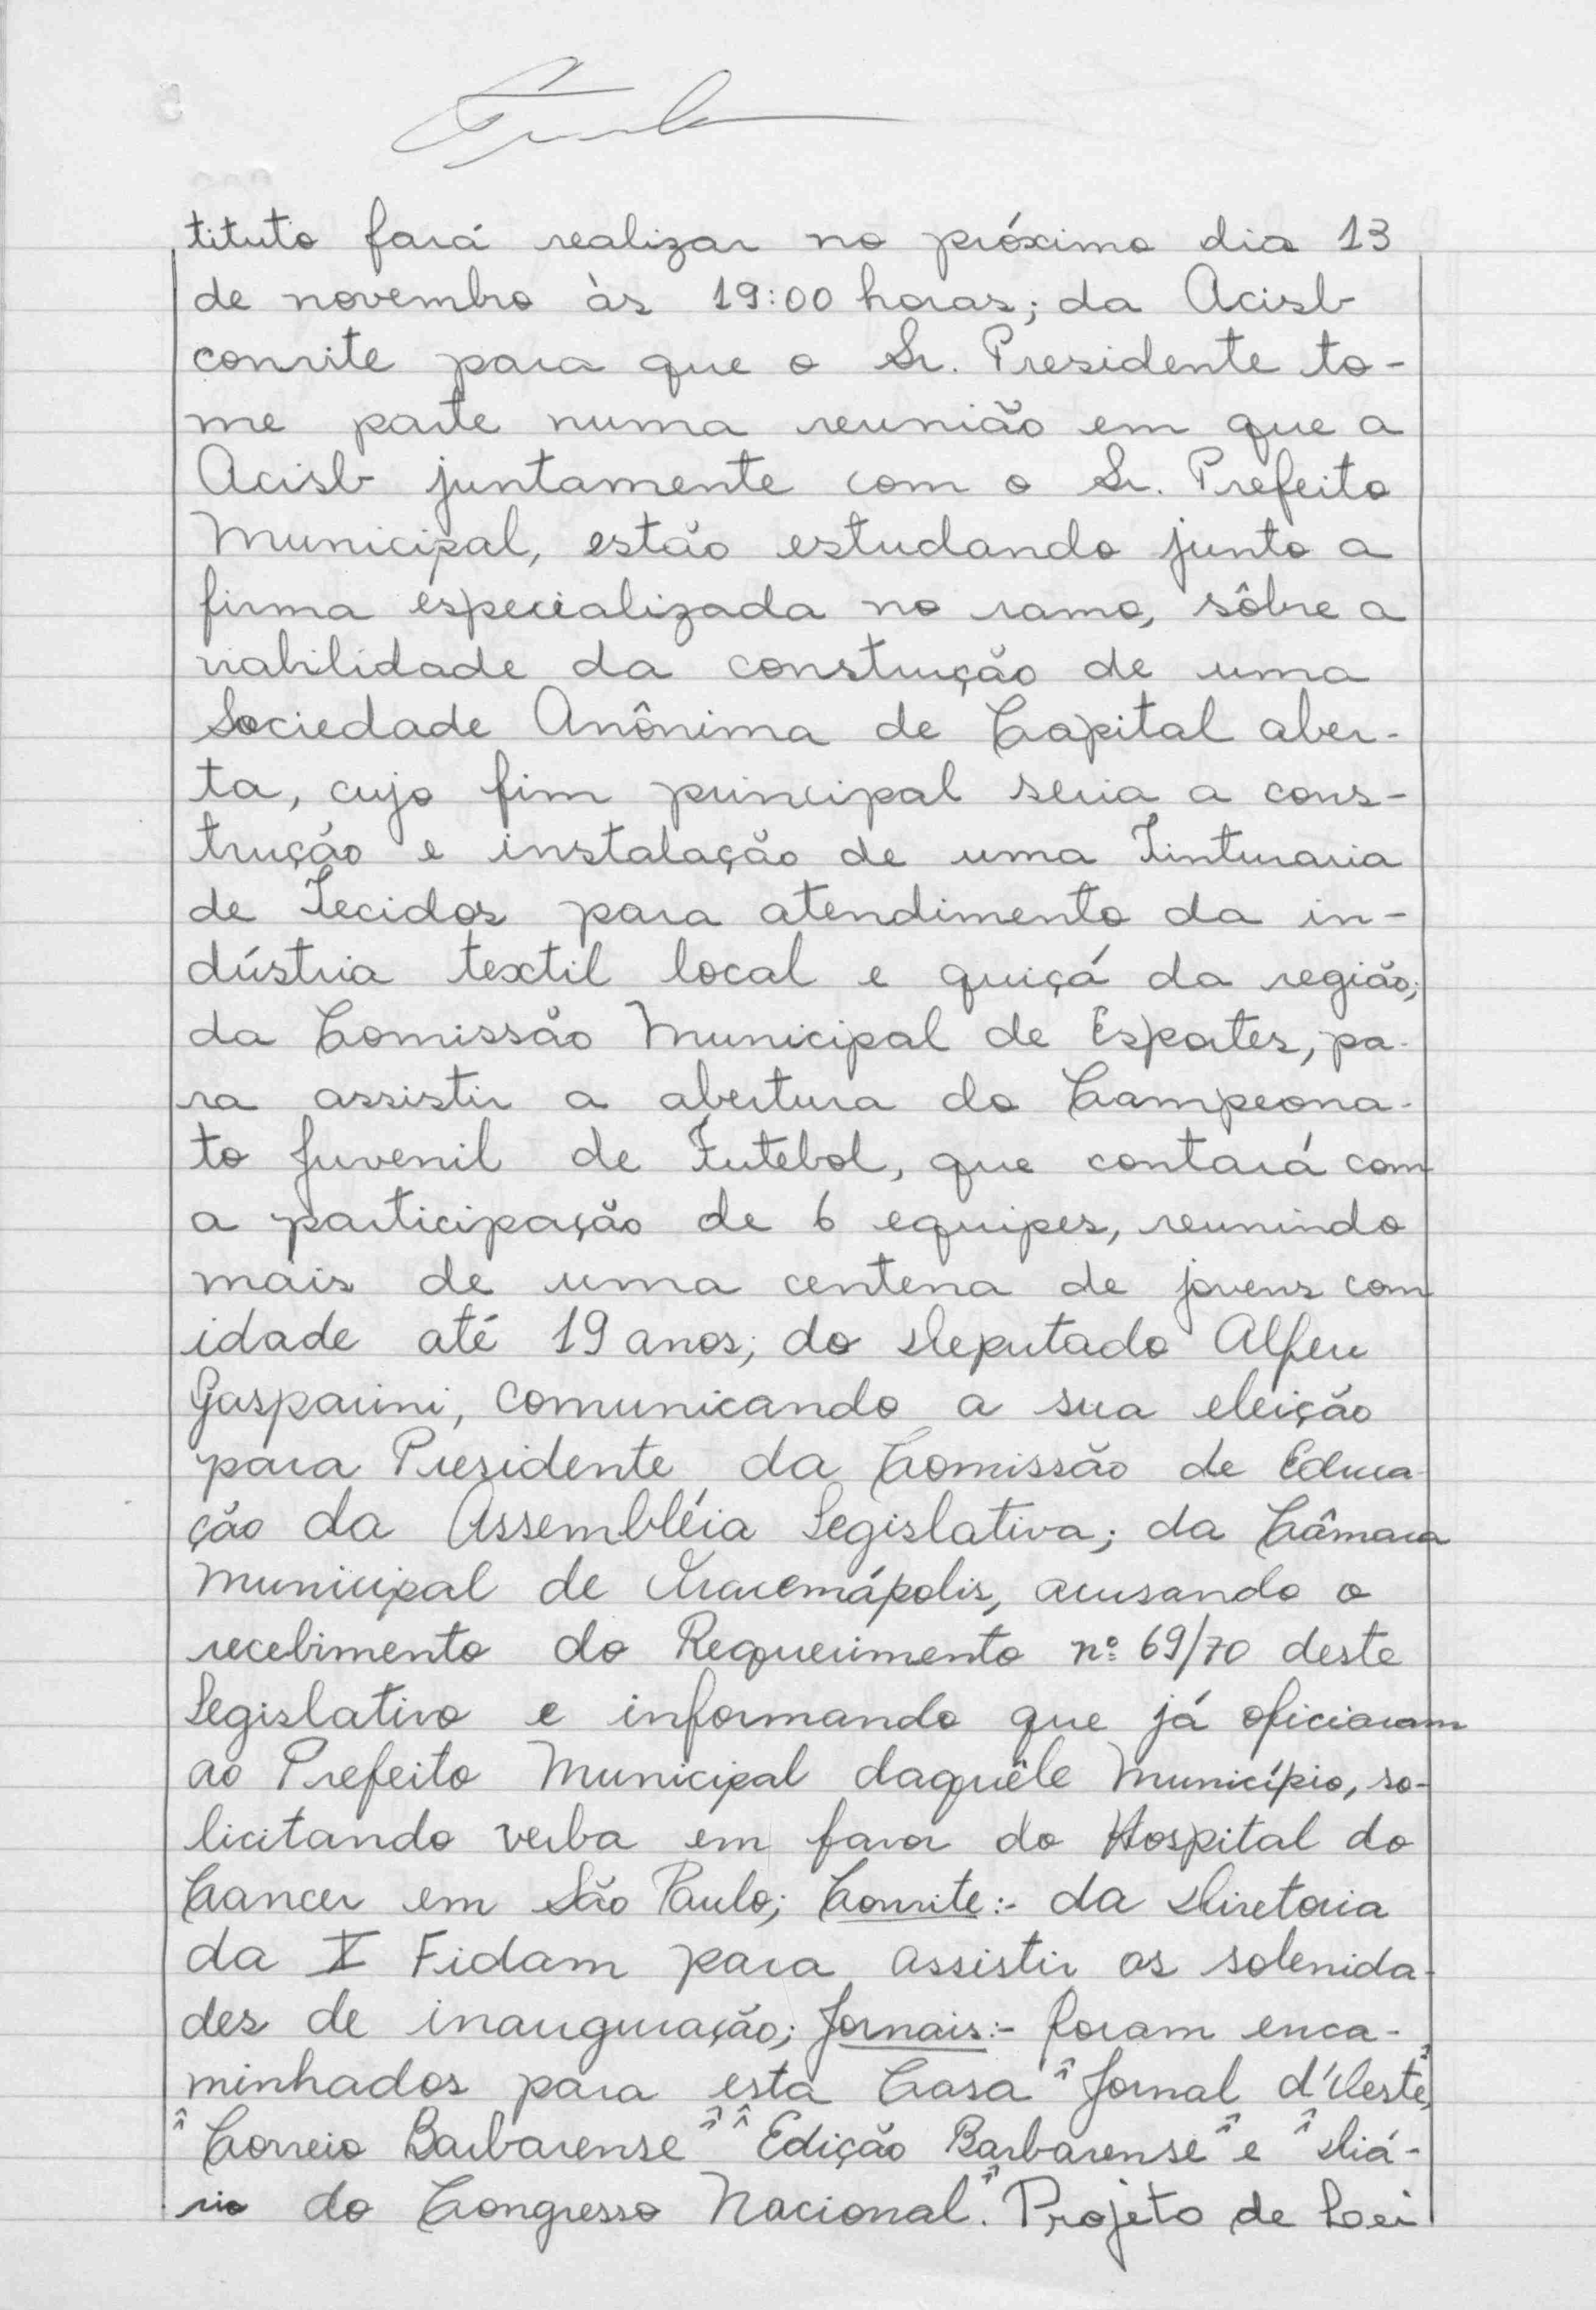 tituto fará realizar no próximo dia 13
de novembro às 19:00 horas; da Acisb
convite para que o Sr. Presidente to-
me parte numa reunião em que a
Acisb juntamente com o Sr. Prefeito
Municipal, estão estudando junto a
firma especializada no ramo, sôbre a
viabilidade da construção de uma
Sociedade Anônima de Capital aber-
ta, cujo fim principal seria a cons-
trução e instalação de uma Tinturaria
de Tecidos para atendimento da in-
dústria textil local e quiçá da região;
da Comissão Municipal de Esportes, pa-
ra assistir a abertura do Campeona-
to Juvenil de Futebol, que contará com
a participação de 6 equipes, reunindo
mais de uma centena de jovens com
idade até 19 anos; do Deputado Alfeu
Gasparini, comunicando a sua eleição
para Presidente da Comissão de Educa-
ção da Assembléia Legislativa; da Câmara
Municipal de Iracemápolis, acusando o
recebimento do Requerimento nº 69/70 deste
Legislativo e informando que já oficiaram
ao Prefeito Municipal daquêle Município, so-
licitando verba em favor do Hospital do
Cancer em São Paulo; Convite:- da Diretoria
da X Fidam para assistir as solenida-
des de inauguração; Jornais:- foram enca-
minhados para esta Casa "Jornal d'Oeste",
"Correio Barbarense" "Edição Barbarense" e "Diá-
rio do Congresso Nacional". Projeto de Lei